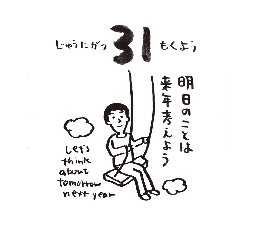 じゅうにがつ 31 もくよう
明日のことは
来年考えよう
Let's
think
about
tomorrow
next year